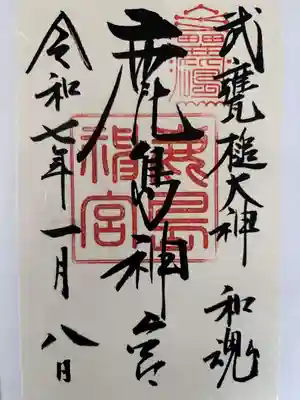 武甕槌大神 和魂
鹿島神宮
鹿島
神宮
令和七年一月八日